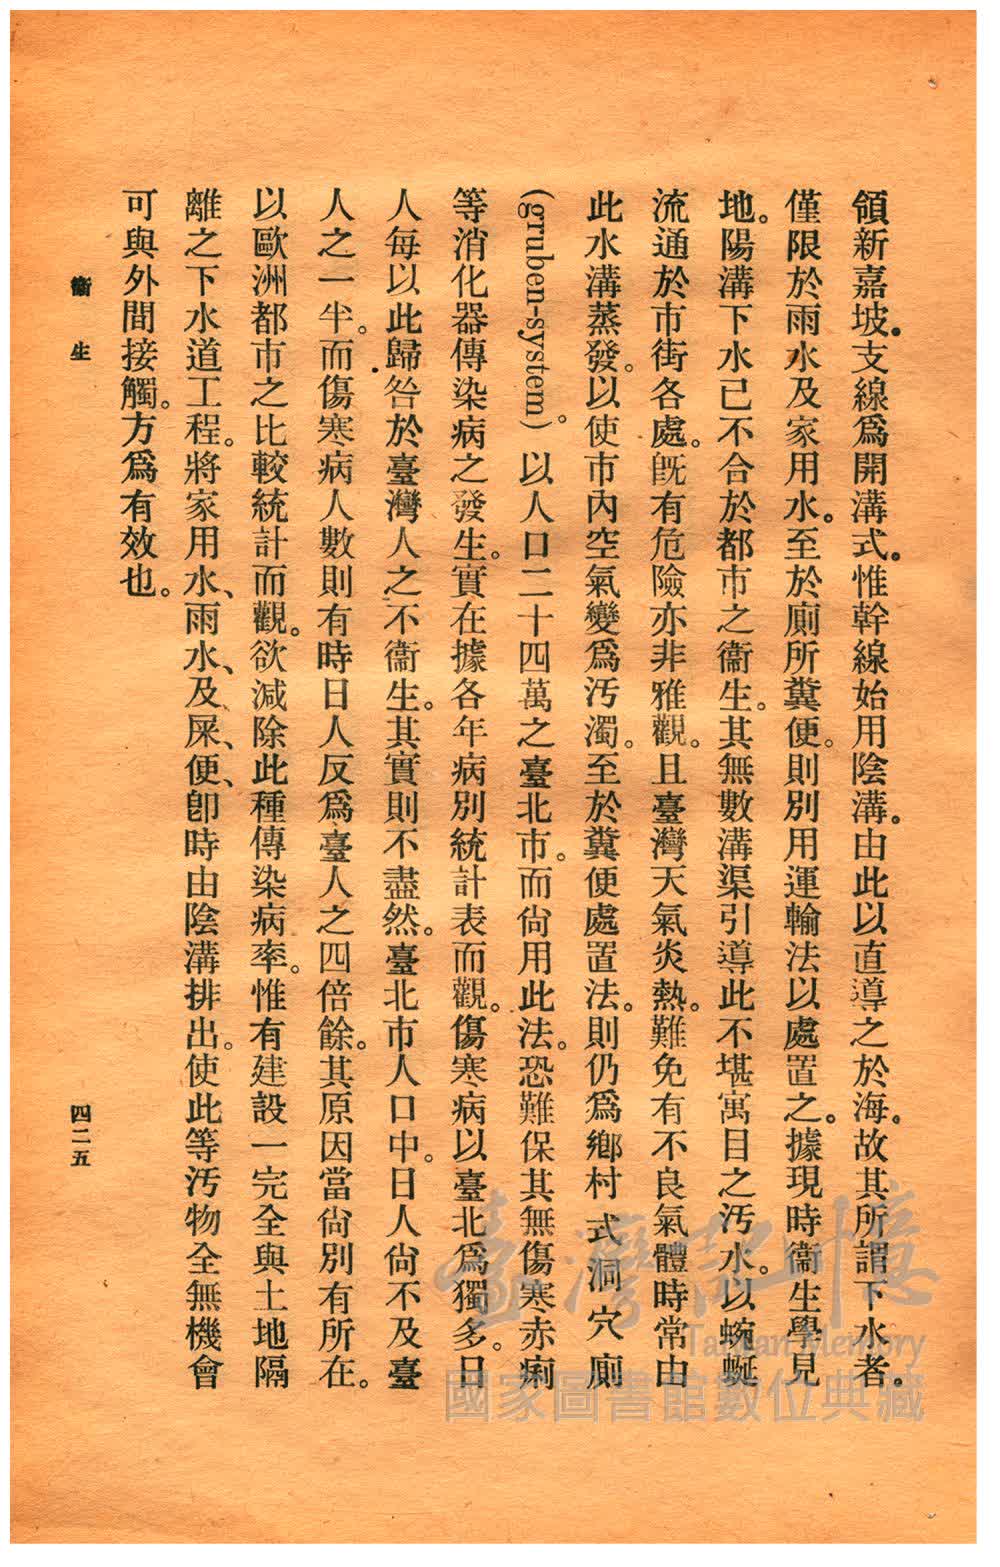 領新嘉坡。支線爲開溝式。惟幹線始用陰溝。由此以直導之於海。故其所謂下水者。
僅限於雨水及家用水。至於廁所糞便。則別用運輸法以處置之。據現時衞生學見
地。陽溝下水已不合於都市之衞生。其無數溝渠引導此不堪寓目之汚水。以蜿蜒
流通於市街各處。旣有危險亦非雅觀。且臺灣天氣炎熱。難免有不良氣體時常由
此水溝蒸發。以使市內空氣變爲汚濁。至於糞便處置法。則仍爲鄉村式洞穴廁
(gruben-system)。以人口二十四萬之臺北市。而尙用此法。恐難保其無傷寒赤痢
等消化器傳染病之發生。實在據各年病別統計表而觀。傷寒病以臺北爲獨多。日
人每以此歸咎於臺灣人之不衞生。其實則不盡然。臺北市人口中。日人尙不及臺
人之一半。而傷寒病人數則有時日人反爲臺人之四倍餘。其原因當尙別有所在。
以歐洲都市之比較統計而觀。欲減除此種傳染病率。惟有建設一完全與土地隔
離之下水道工程。將家用水、雨水、及屎、便、卽時由陰溝排出。使此等汚物全無機會
可與外間接觸。方爲有效也。
衞生
四二五
臺灣記憶
Taiwan Memory
國家圖書館數位典藏